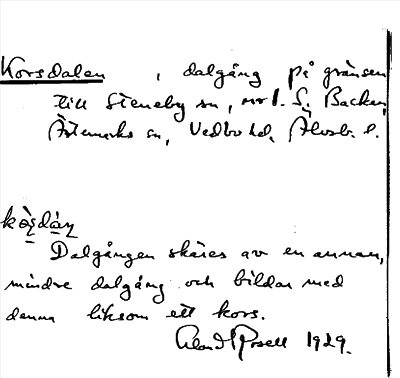 Korsdalen, dalgång på gränsen
till Steneby sn, nr 1. S. Backen,
Ärtemarks sn, Vedbo hd, Älvsb. l.
Dalgången skäres av en annan,
mindre dalgång och bildar med
denna liksom ett kors.
Rosell 1929.